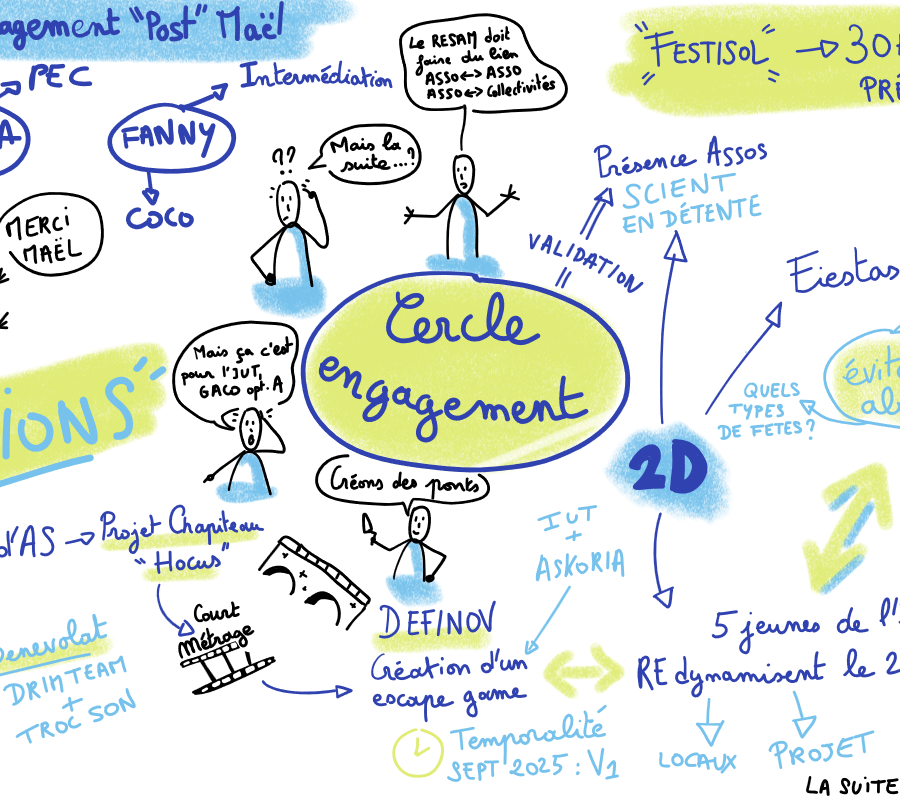 agement "Post" Maël
PEC
A
FANNY
Intermédiation
COCO
MERCI
MAËL
??
Mais la
suite...?
Le RESAM doit
faire du lien
ASSO <-> ASSO
ASSO <-> Collectivités
"FESTISOL"
30
PRÉ
Présence Assos
SCIENT
EN DÉTENTE
VALIDATION
Fiestas
évite
al
QUELS
TYPES
DE FETES?
Cercle
engagement
2D
IONS
Mais ça c'est
pour l'JUT,
GACO opt. A
Créons des ponts
d'AS
Projet Chapiteau
"Hocus"
Court
Métrage
Benevolat
DRIMTEAM
+
TROC SON
IUT
+
ASKORIA
DEFINOV
Création d'un
escape game
Temporalité
SEPT 2025 : V1
5 jeunes de l'
REdynamisent le 2
LOCAUX
PROJET
LA SUITE